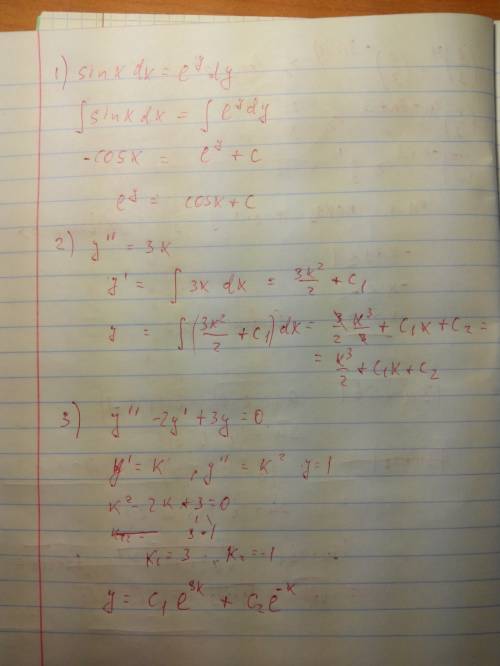 1) sinx dx = e^y dy
∫ sinx dx = ∫ e^y dy
-cosx = e^y + c
e^y = cosx + c
2) y'' = 3x
y' = ∫ 3x dx = 3x²/2 + c₁
y = ∫ (3x²/2 + c₁) dx = 3/2 x³/3 + c₁x + c₂ =
= x³/2 + c₁x + c₂
3) y'' - 2y' + 3y = 0
y' = k, y'' = k² y = 1
k² - 2k + 3 = 0
k₁ = 3, k₂ = -1
y = c₁ e^3x + c₂ e^-x